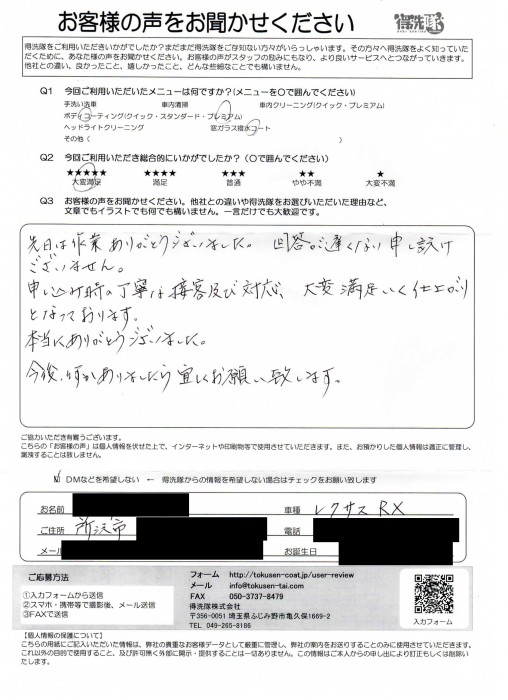 お客様の声をお聞かせください 得洗隊
得洗隊をご利用いただきいかがでしたか?まだまだ得洗隊をご存知ない方々がいらっしゃいます。その方々へ得洗隊をよく知っていた
だくために、あなた様の声をお聞かせください。お客様の声がスタッフの励みにもなり、より良いサービスへとつながっていきます。
他社との違い、良かったこと、嬉しかったこと、どんな些細なことでも構いません。
Q1 今回ご利用いただいたメニューは何ですか?(メニューを〇で囲んでください)
手洗い洗車 車内清掃 車内クリーニング(クイック・プレミアム)
ボディコーティング(クイック・スタンダード・プレミアム)
ヘッドライトクリーニング 窓ガラス撥水コート
その他( )
Q2 今回ご利用いただき総合的にいかがでしたか?(〇で囲んでください)
★★★★★ ★★★★ ★★★ ★★ ★
大変満足 満足 普通 やや不満 大変不満
Q3 お客様の声をお聞かせください。他社との違いや得洗隊をお選びいただいた理由など、
文章でもイラストでも何でも構いません。一言だけでも大歓迎です。
先日は作業ありがとうございました。回答が遅くなり申し訳
ございません。
申し込み時の丁寧な接客及び対応、大変満足いく仕上がり
となっております。
本当にありがとうございました。
今後、何かありましたら宜しくお願い致します。
ご協力いただき有難うございます。
こちらの「お客様の声」は個人情報を伏せた上で、インターネットや印刷物等で使用させていただきます。また、お預かりした個人情報は適正に管理し、
漏洩することは致しません。
DMなどを希望しない ← 得洗隊からの情報を希望しない場合はチェックをお願い致します
お名前 車種 レクサス RX
ご住所 所沢市 電話
メール お誕生日
ご応募方法
①入力フォームから送信
②スマホ・携帯等で撮影後、メール送信
③FAXで送信
フォーム http://tokusen-coat.jp/user-review
メール info@tokusen-tai.com
FAX 050-3737-8479
得洗隊株式会社
〒356-0051 埼玉県ふじみ野市亀久保1669-2
TEL 049-265-8186
入力フォーム
【個人情報の保護について】
こちらの用紙にご記入いただいた情報は、弊社の貴重なお客様データとして厳重に管理し、弊社の案内をお送りすることのみに使用させていただきます。
これ以外の目的で使用すること、及び許可無く外部に開示・提供することは一切ありません。この情報はご本人からの申し出により訂正もしくは削除い
たします。